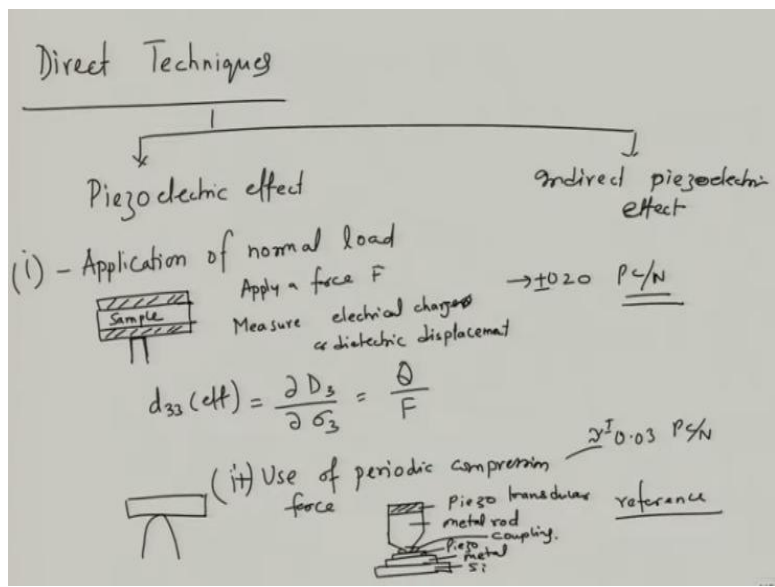 Direct Techniques
Piezoelectric effect
Indirect piezoelectric
effect
(i) - Application of normal load
Apply a force F
Sample
Measure electrical charges
or dielectric displacemat
→ ±020 PC/N
d33 (eff) = ∂D3 / ∂σ3 = Q / F
(ii) Use of periodic compression
force
0.03 PC/N
Piezo transdular
metal rod
coupling.
Piezo
metal
Si
reference